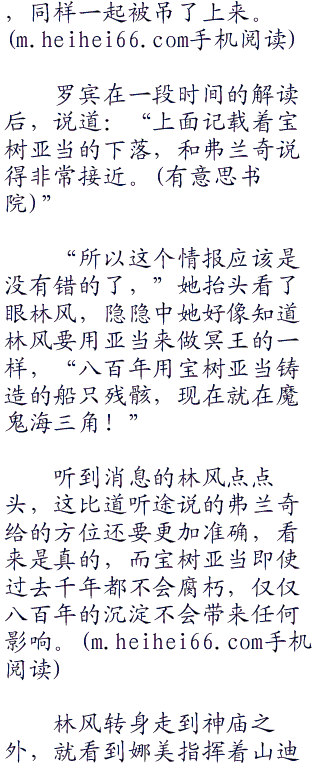 ，同样一起被吊了上来。
(m.heihei66.com手机阅读)
罗宾在一段时间的解读
后，说道：“上面记载着宝
树亚当的下落，和弗兰奇说
得非常接近。(有意思书
院)”
“所以这个情报应该是
没有错的了，”她抬头看了
眼林风，隐隐中她好像知道
林风要用亚当来做冥王的一
样，“八百年用宝树亚当铸
造的船只残骸，现在就在魔
鬼海三角！”
听到消息的林风点点
头，这比道听途说的弗兰奇
给的方位还要更加准确，看
来是真的，而宝树亚当即使
过去千年都不会腐朽，仅仅
八百年的沉淀不会带来任何
影响。(m.heihei66.com手机
阅读)
林风转身走到神庙之
外，就看到娜美指挥着山迪